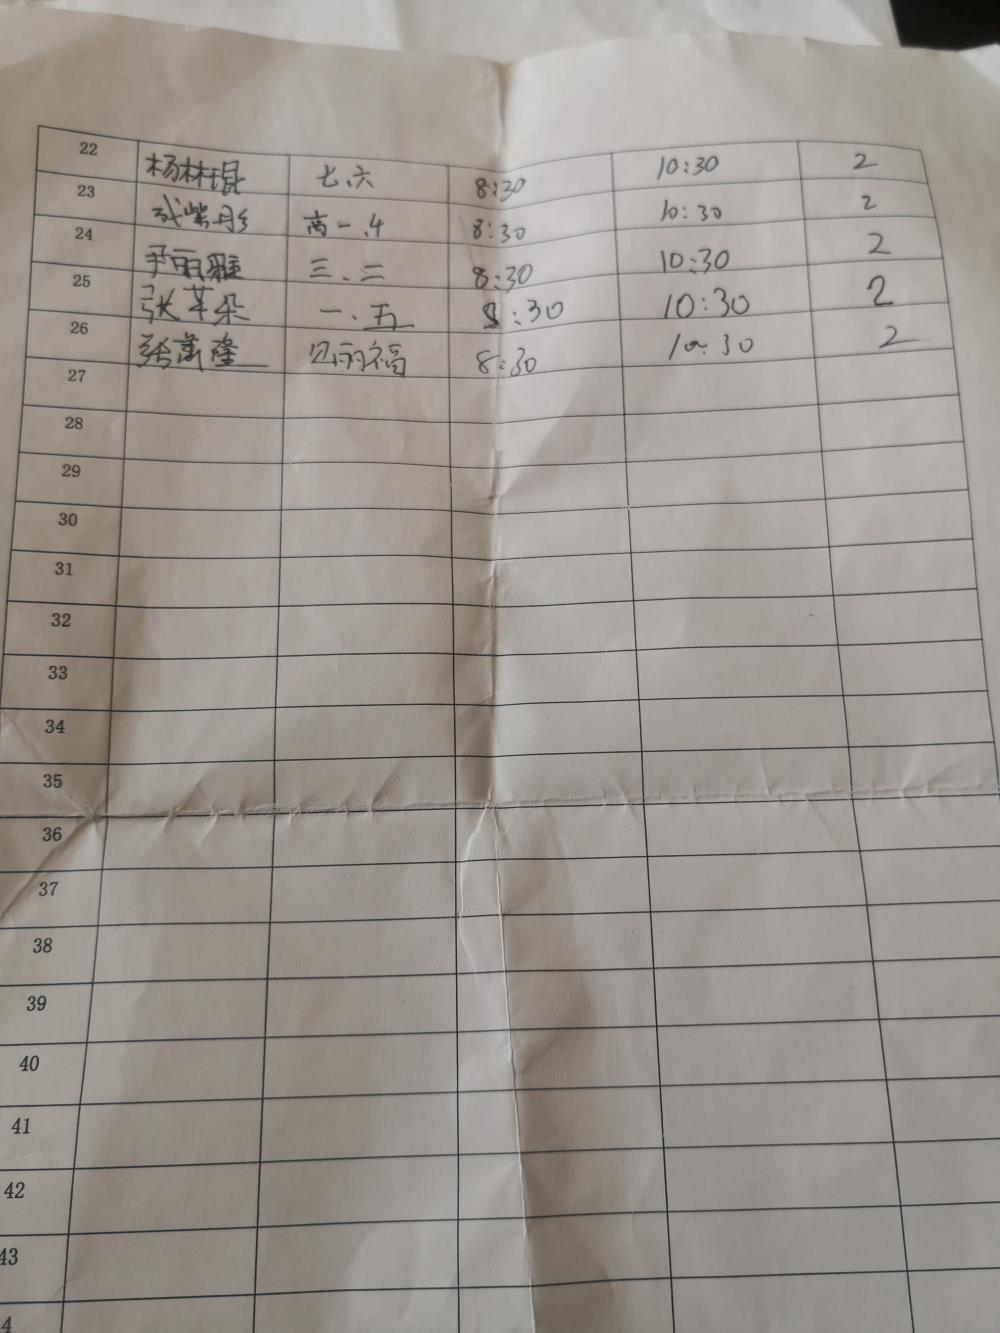 22 杨林琨 七、六 8:30 10:30 2
23 紫彤 高一.4 8:30 10:30 2
24 尹丽雅 三、二 8:30 10:30 2
25 张苹朵 一、五 8:30 10:30 2
26 张萬隆 雨福 8:30 10:30 2
27
28
29
30
31
32
33
34
35
36
37
38
39
40
41
42
43
4